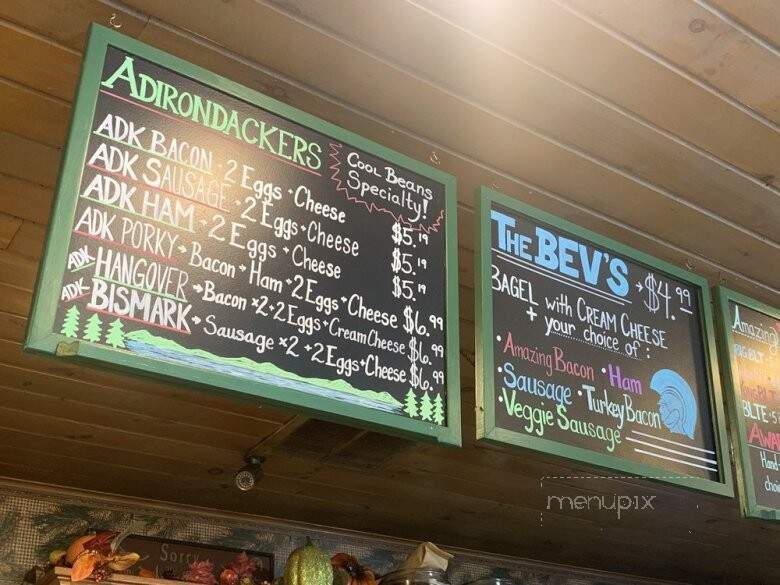 ADIRONDACKERS
COOL BEANS
Specialty!
ADK BACON • 2 Eggs • Cheese $5.19
ADK SAUSAGE • 2 Eggs • Cheese $5.19
ADK HAM • 2 Eggs • Cheese $5.19
ADK PORKY • Bacon • Ham • 2 Eggs • Cheese $6.99
ADK HANGOVER • Bacon x2 • 2 Eggs • Cream Cheese $6.99
ADK BISMARK • Sausage x2 • 2 Eggs • Cheese $6.99
THE BEV'S • $4.99
BAGEL with CREAM CHEESE
+ your choice of:
• Amazing Bacon • Ham
• Sausage • Turkey Bacon
• Veggie Sausage
Amazing
BLTE
Hand
choi
Sorry
menupix